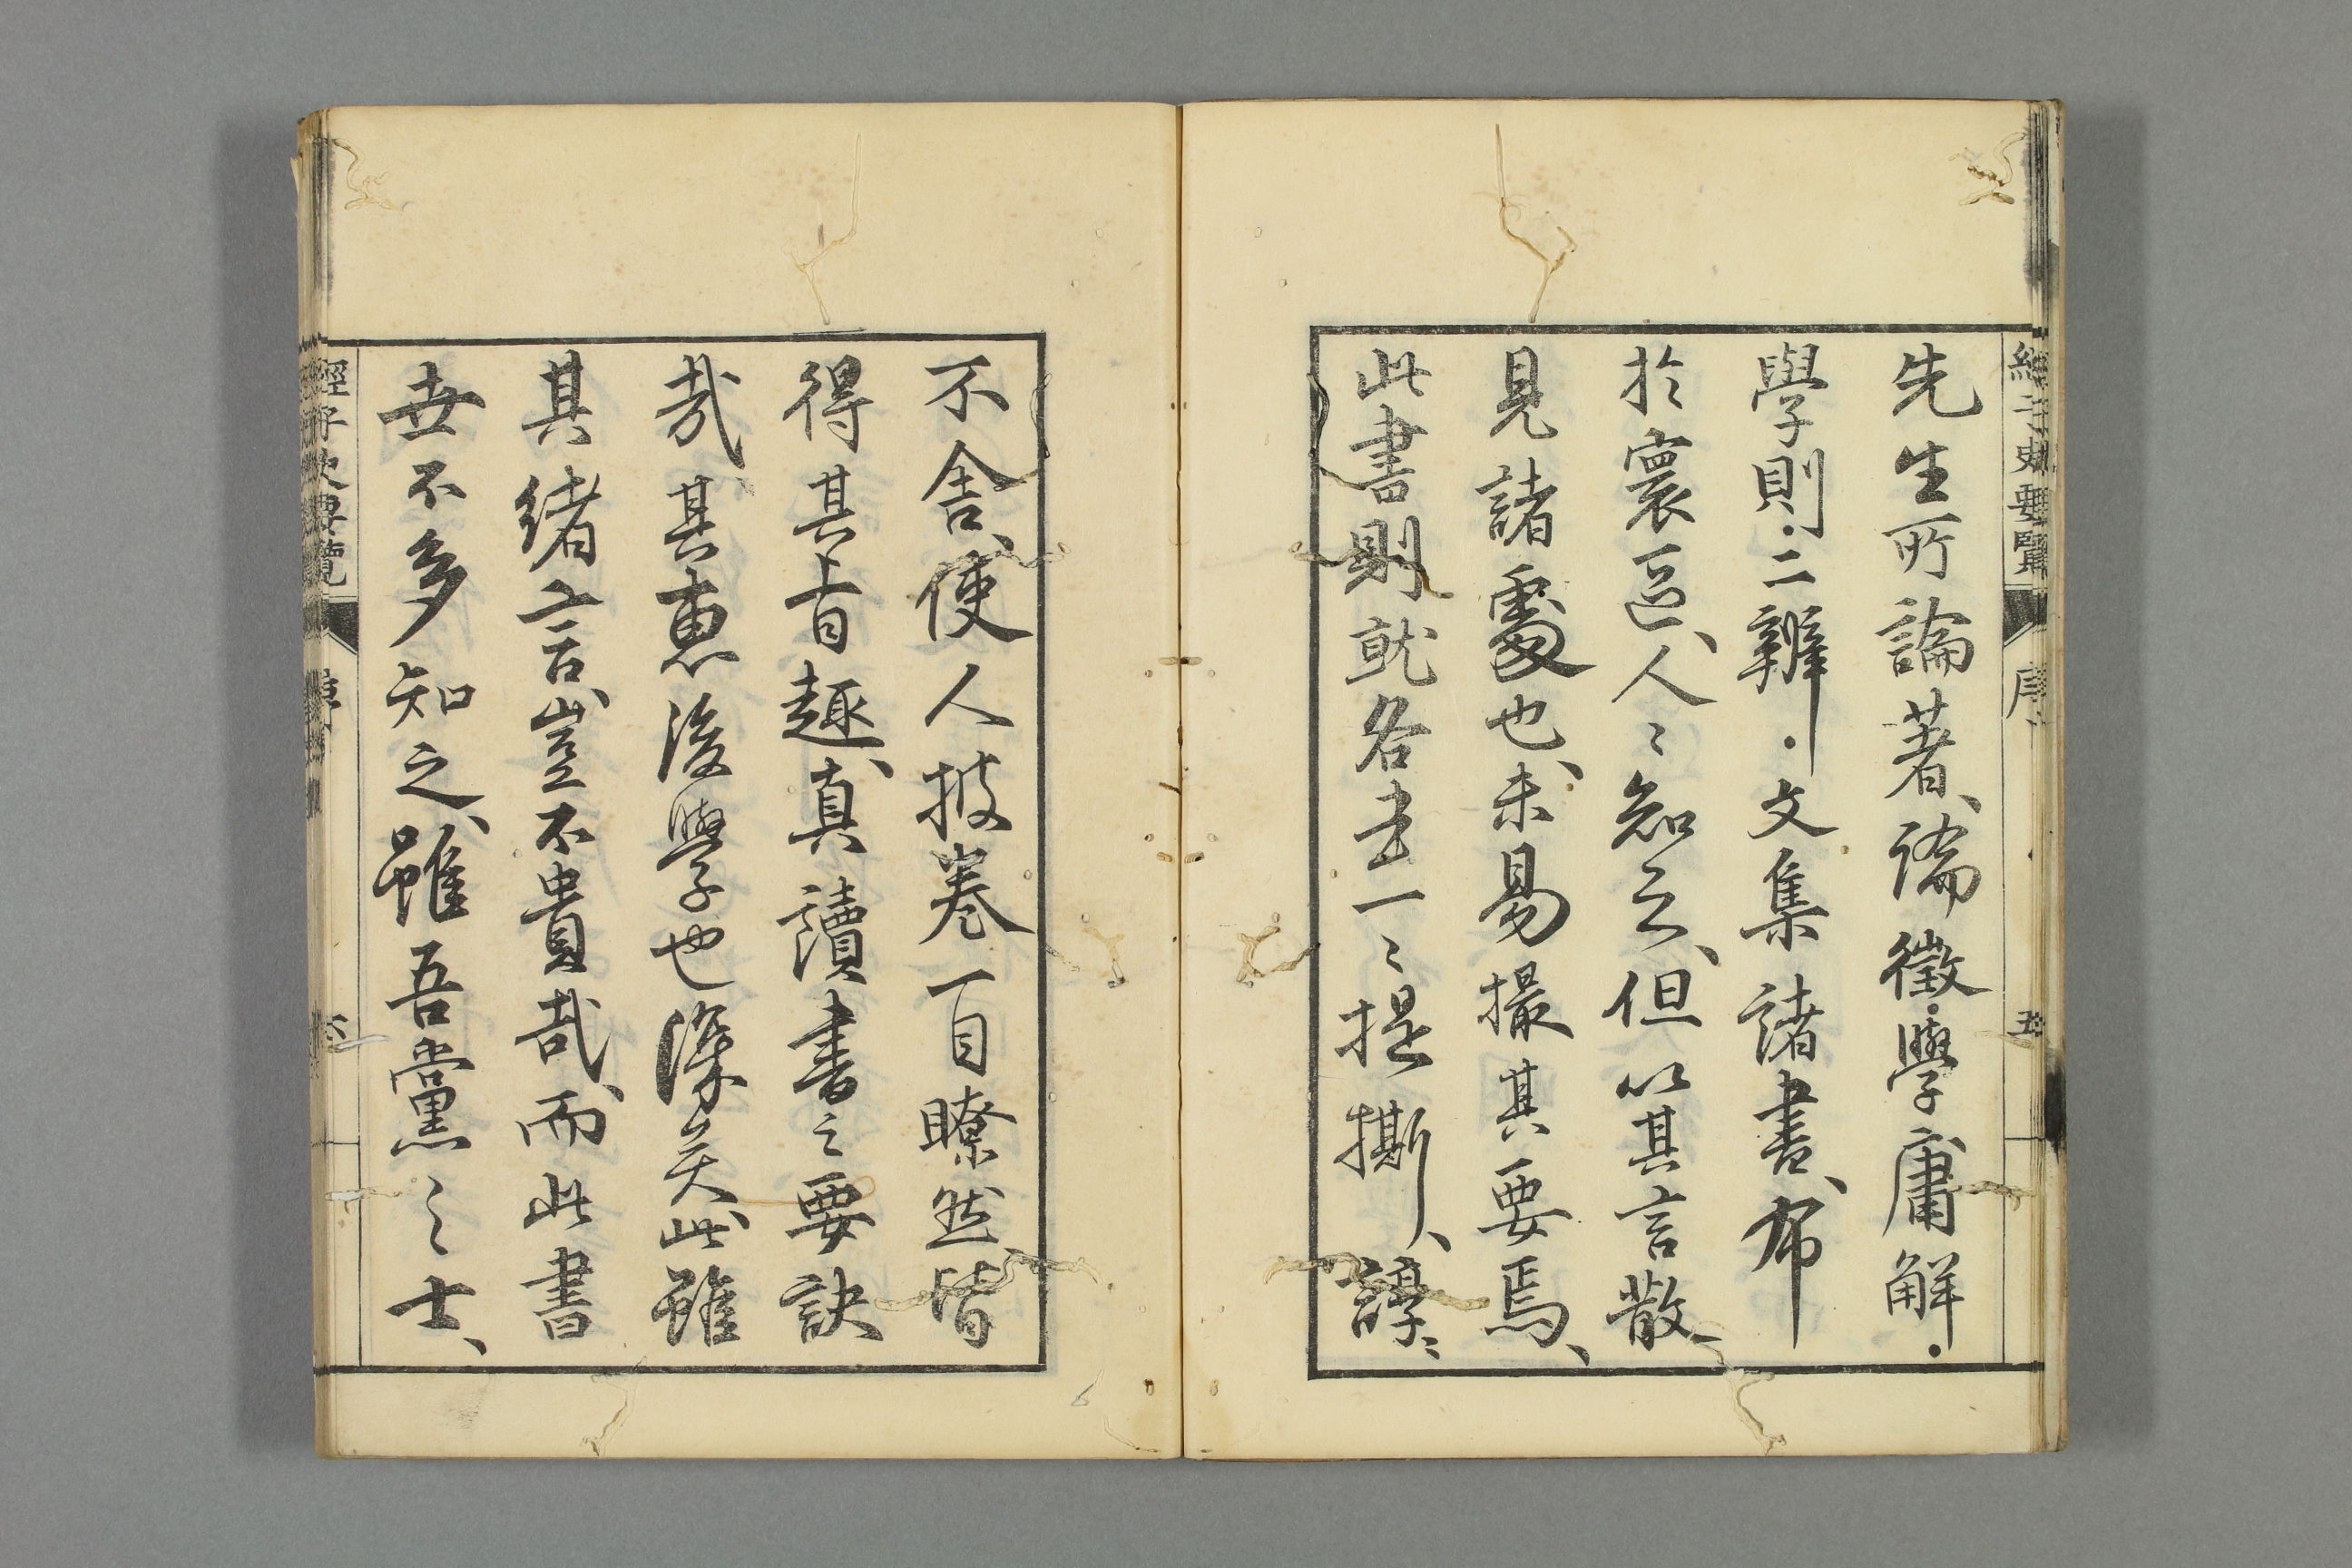 經子史要覽 序 五
先生所論著、論徵・學庸解・
學則・二辨・文集諸書、布
於寰區、人〻知之、但以其言散
見諸處也、未易撮其要焉、
此書則就各書一〻提撕、諄〻
不舍、使人披卷一目瞭然皆
得其旨趣、真讀書之要訣
哉、其惠後學也深矣、此雖
其緒言、豈不貴哉、而此書
世不多知之、雖吾黨之士、
經子史要覽 序 六